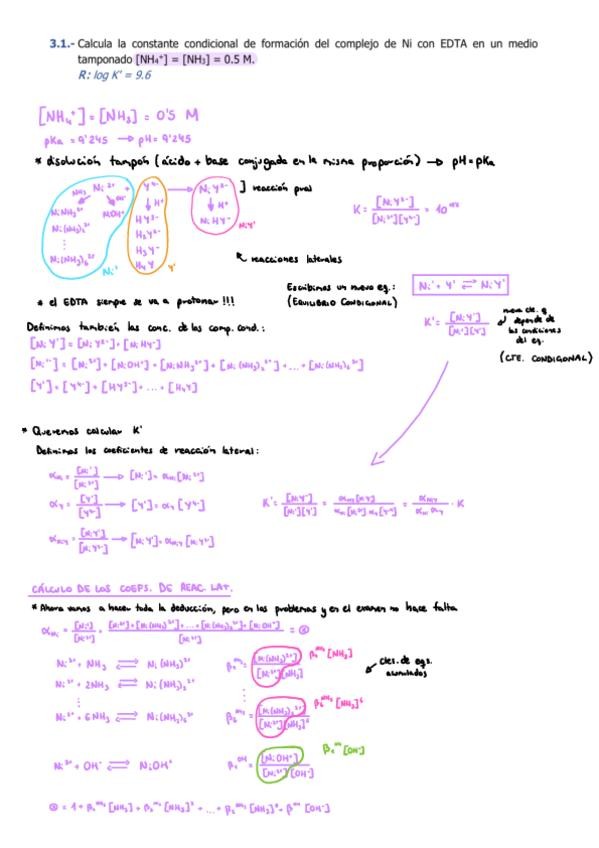 3.1.- Calcula la constante condicional de formación del complejo de Ni con EDTA en un medio
tamponado [NH₄⁺] = [NH₃] = 0.5 M.
R: log K' = 9.6
[NH₄⁺] = [NH₃] = 0'5 M
pKa = 9'245 → pH = 9'245
* disolución tampón (ácido + base conjugada en la misma proporción) → pH = pKa
Ni²⁺ + Y⁴⁻ → NiY²⁻ ] reacción pral
NH₃ OH⁻ ↓H⁺ ↓H⁺
NiNH₃²⁺ NiOH⁺ HY³⁻ NiHY⁻
Ni(NH₃)₂²⁺ H₂Y²⁻ NiY'
⋮ H₃Y⁻
Ni(NH₃)₆²⁺ H₄Y
Ni' Y'
K = [NiY²⁻] / [Ni²⁺][Y⁴⁻]
↖ reacciones laterales
* el EDTA siempre se va a protonar !!!
Escribimos un nuevo eq.:
(EQUILIBRIO CONDICIONAL)
Ni' + Y' ⇌ NiY'
K' = [NiY'] / [Ni'][Y']
nueva cte. q
depende de
las condiciones
del eq.
(CTE. CONDICIONAL)
Definimos también las conc. de los comp. cond.:
[NiY'] = [NiY²⁻] + [NiHY⁻]
[Ni'] = [Ni²⁺] + [NiOH⁺] + [NiNH₃²⁺] + [Ni(NH₃)₂²⁺] + ... + [Ni(NH₃)₆²⁺]
[Y'] = [Y⁴⁻] + [HY³⁻] + ... + [H₄Y]
* Queremos calcular K'
Definimos los coeficientes de reacción lateral:
αNi = [Ni'] / [Ni²⁺] → [Ni'] = αNi [Ni²⁺]
αY = [Y'] / [Y⁴⁻] → [Y'] = αY [Y⁴⁻]
αNiY = [NiY'] / [NiY²⁻] → [NiY'] = αNiY [NiY²⁻]
K' = [NiY'] / [Ni'][Y'] = αNiY [NiY] / αNi [Ni²⁺] αY [Y⁴⁻] = αNiY / αNi αY · K
CÁLCULO DE LOS COEFS. DE REAC. LAT.
* Ahora vamos a hacer toda la deducción, pero en los problemas y en el examen no hace falta
αNi = [Ni'] / [Ni²⁺] = [Ni²⁺] + [Ni(NH₃)²⁺] + ... + [Ni(NH₃)₆²⁺] + [NiOH⁺] / [Ni²⁺] = ⊗
Ni²⁺ + NH₃ ⇌ Ni(NH₃)²⁺ β₁ᴺᴴ³ = [Ni(NH₃)²⁺] / [Ni²⁺][NH₃] β₁ᴺᴴ³ [NH₃]
Ni²⁺ + 2NH₃ ⇌ Ni(NH₃)₂²⁺
⋮ ⋮
Ni²⁺ + 6NH₃ ⇌ Ni(NH₃)₆²⁺ β₆ᴺᴴ³ = [Ni(NH₃)₆²⁺] / [Ni²⁺][NH₃]⁶ β₆ᴺᴴ³ [NH₃]⁶
ctes. de eqs.
acumulados
Ni²⁺ + OH⁻ ⇌ NiOH⁺ β₁ᴼᴴ = [NiOH⁺] / [Ni²⁺][OH⁻] β₁ᴼᴴ [OH⁻]
⊗ = 1 + β₁ᴺᴴ³ [NH₃] + β₂ᴺᴴ³ [NH₃]² + ... + β₆ᴺᴴ³ [NH₃]⁶ + βᴼᴴ [OH⁻]